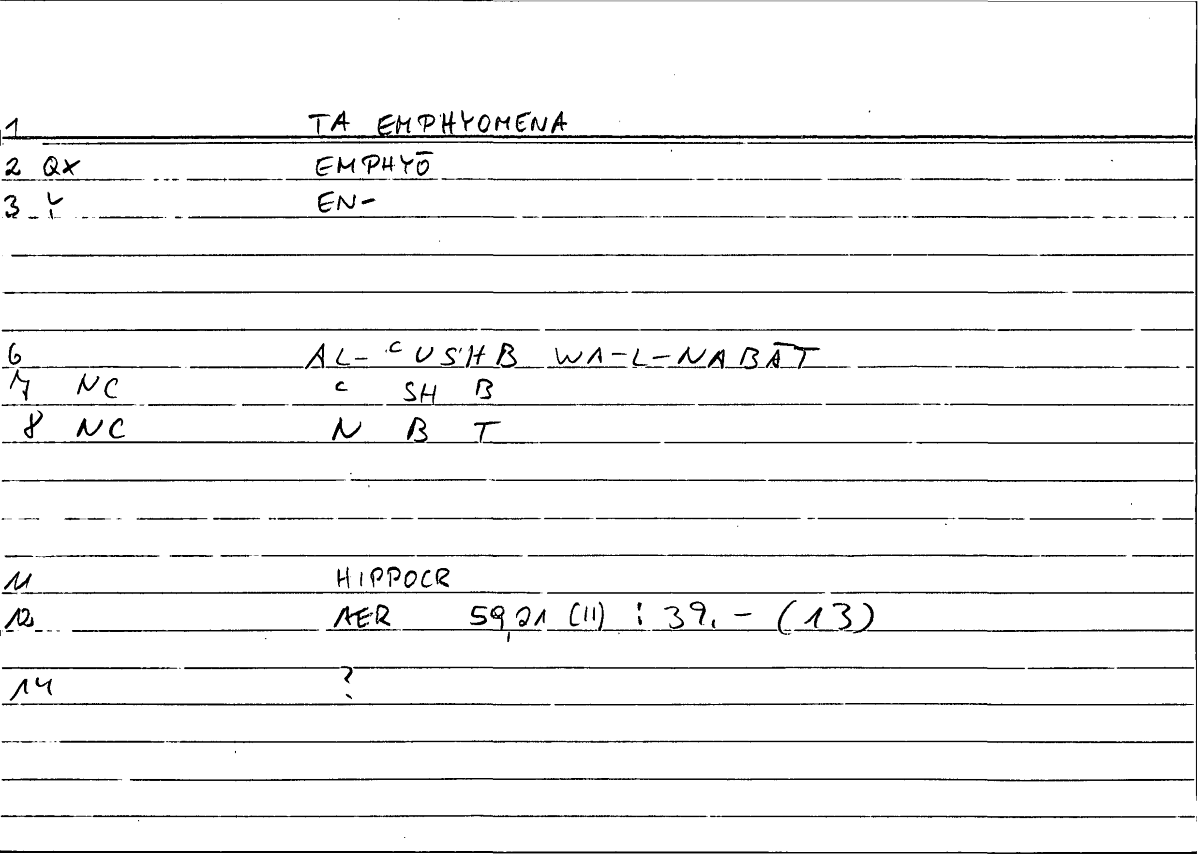 1 TA EMPHYOMENA
2 QX EMPHYŌ
3 Y EN-
6 AL-ᶜUSHB WA-L-NABĀT
7 NC ᶜ SH B
8 NC N B T
11 HIPPOCR
12 AER 59,21 (11) : 39,- (13)
14 ?